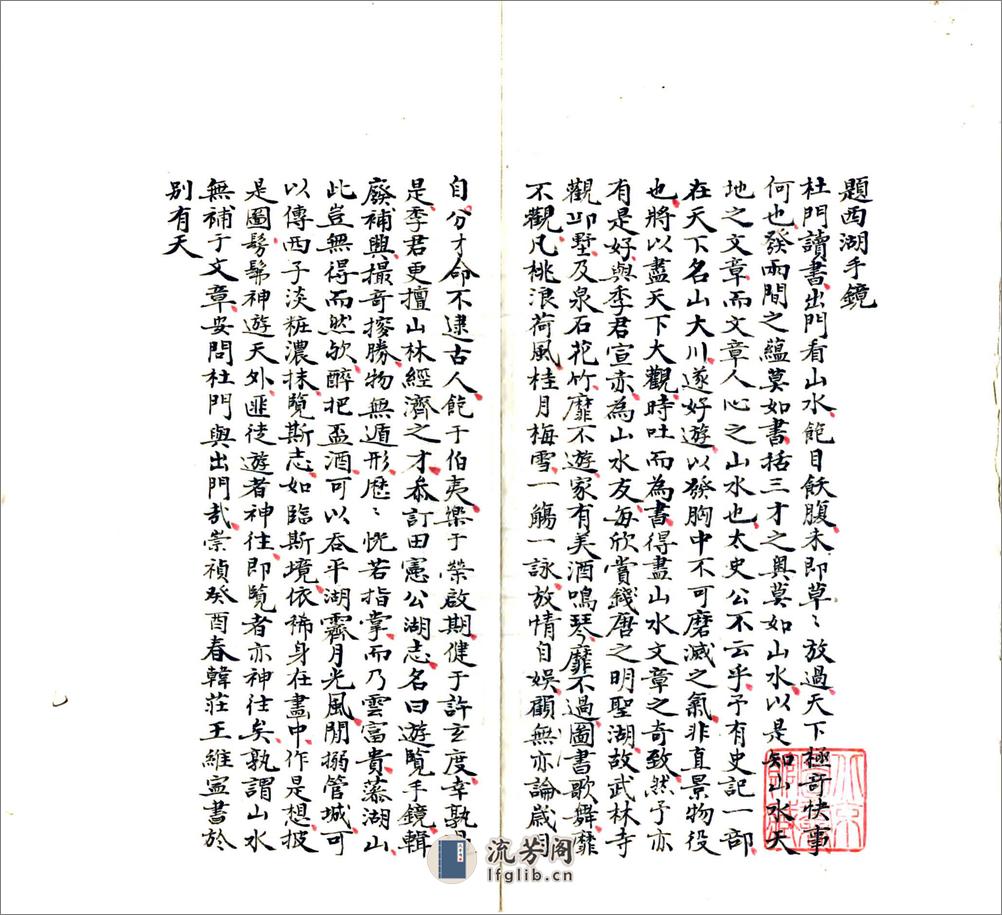 題西湖手鏡
杜門讀書出門看山水飽目飫腹未即草〻放過天下極奇快事
何也發兩間之蘊莫如書括三才之奧莫如山水以是知山水天
地之文章而文章人心之山水也太史公不云乎予有史記一部
在天下名山大川遂好遊以發胸中不可磨滅之氣非直景物役
也將以盡天下大觀時吐而為書得盡山水文章之奇致然予亦
有是好與季君宣亦為山水友每欣賞錢唐之明聖湖故武林寺
觀邱墅及泉石花竹靡不遊家有美酒鳴琴靡不過圖書歌舞靡
不觀凡桃浪荷風桂月梅雪一觴一詠放情自娛顧無亦論歲
自分才命不逮古人飽于伯夷樂于榮啟期健于許玄度幸孰
是季君更擅山林經濟之才忝訂田憲公湖志名曰遊覽手鏡輯
廢補興撮奇勝物無遁形歷〻恍若指掌而乃雲富貴藻湖山
此豈無得而然歟醉把盃酒可以吞平湖霽月光風閒搦管城可
以傳西子淡粧濃抹覽斯志如臨斯境依稀身在畫中作是想披
是圖髣髴神遊天外匪徒遊者神往即覽者亦神往矣孰謂山水
無補于文章安問杜門與出門哉崇禎癸酉春韓莊王維寧書於
別有天
流芳阁
lfglib.cn